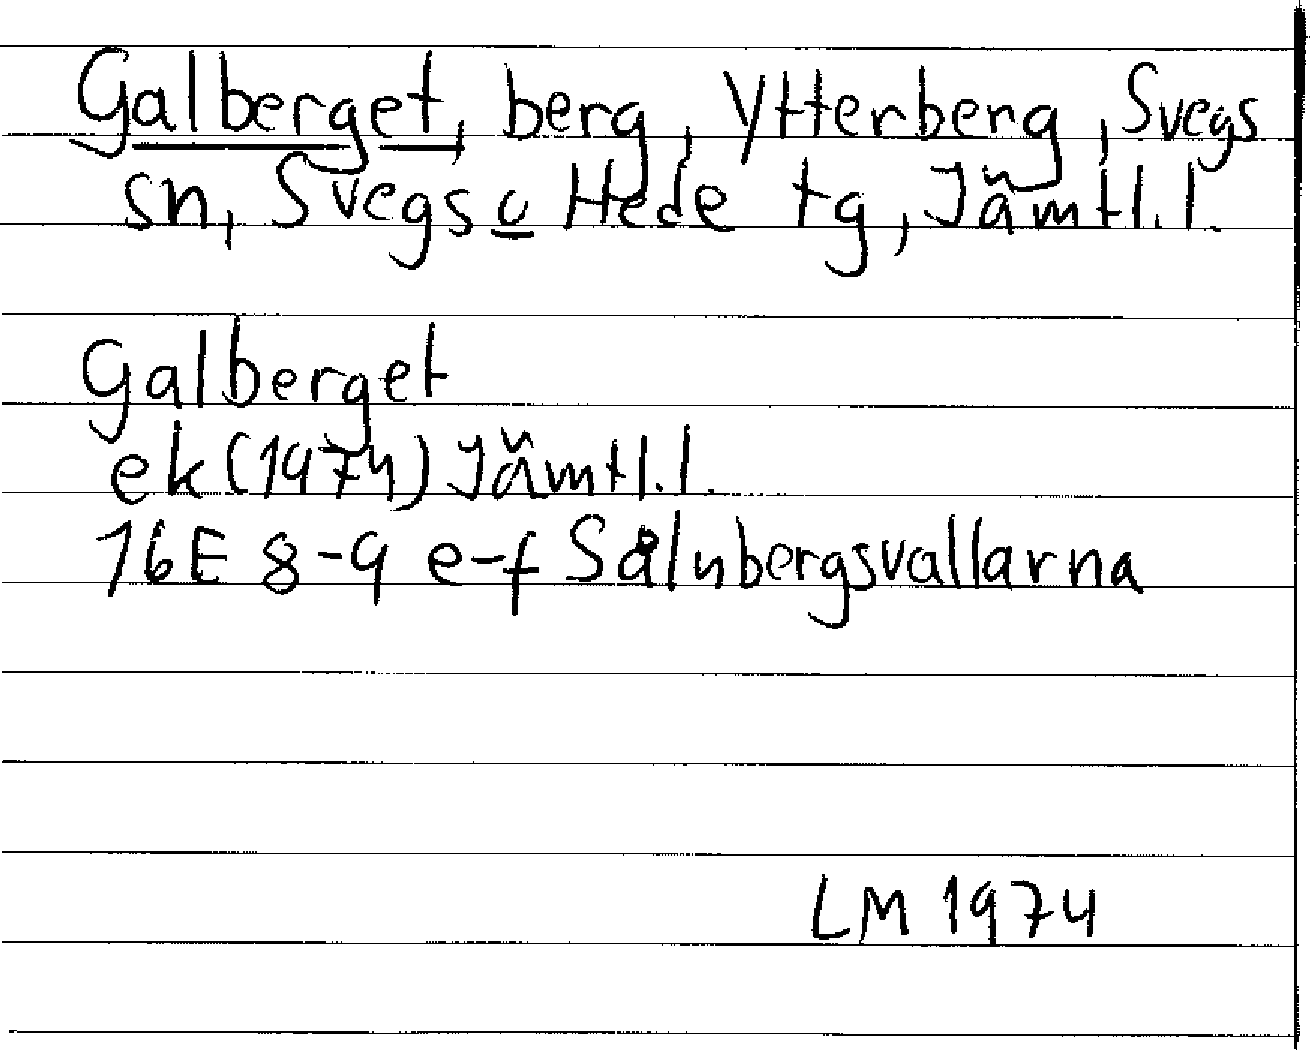 Galberget, berg, Ytterberg, Svegs
sn, Svegs o Hede tg, Jämtl.l.
Galberget
ek (1974) Jämtl.l.
16E 8-9 e-f Sålnbergsvallarna
LM 1974